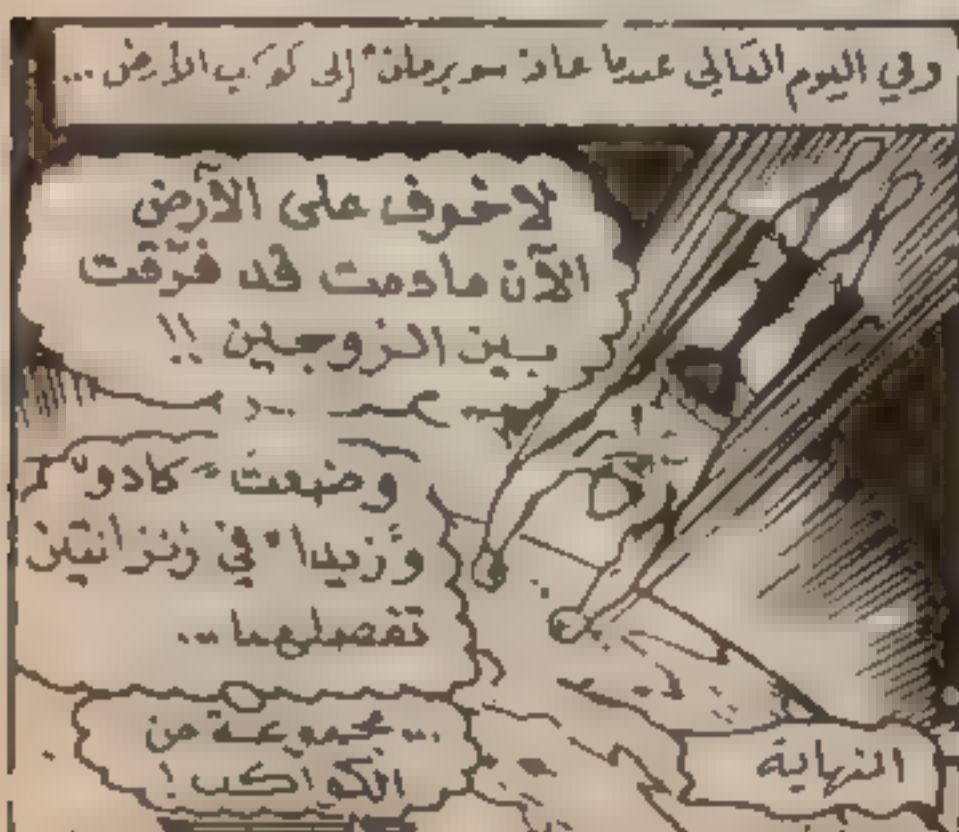 وفي اليوم التالي عندما عاد "سوبرمان" إلى كوكب الأرض...
لا خوف على الأرض
الآن ما دمت قد فرّقت
بين الزوجين !!
وضعت "كادو"
و"زيدا" في زنزانتين
تفصلهما ...
... مجموعة من
الكواكب !
النهاية